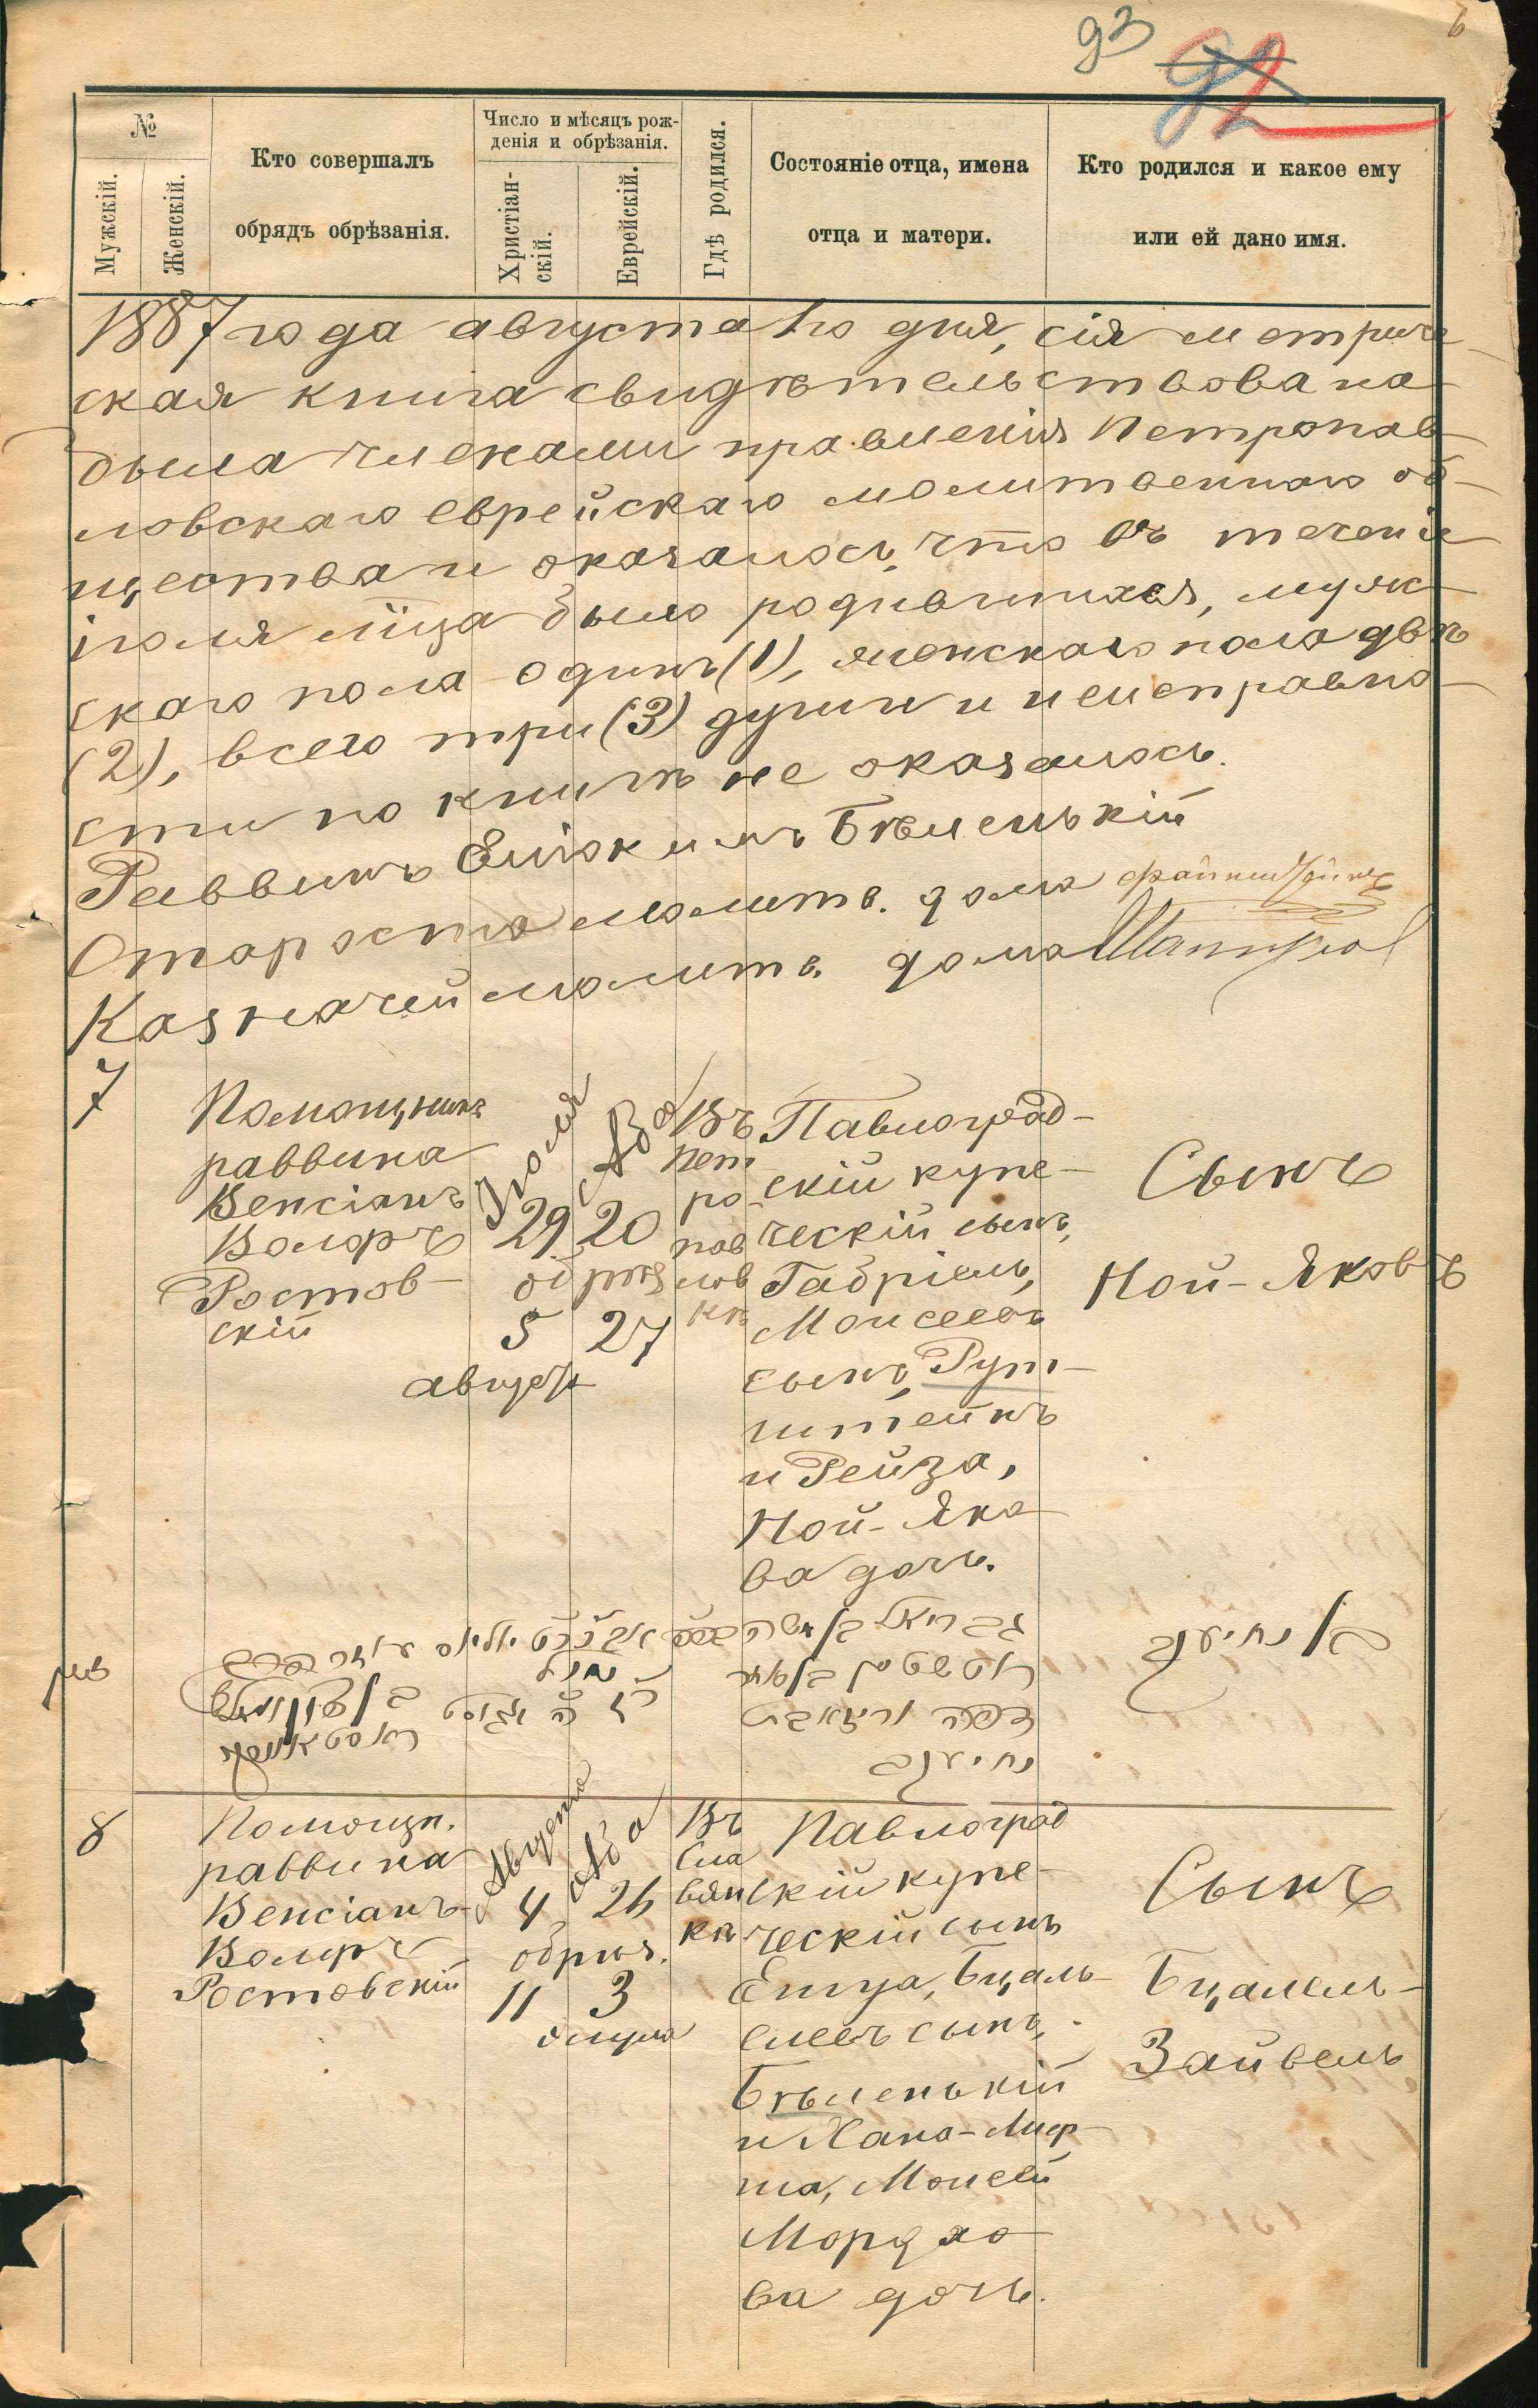 93
92
6
№
Мужскій.
Женскій.
Кто совершалъ
обрядъ обрѣзанія.
Число и мѣсяцъ рож-
денія и обрѣзанія.
Христіан-
скій.
Еврейскій.
Гдѣ родился.
Состояніе отца, имена
отца и матери.
Кто родился и какое ему
или ей дано имя.
1887 года августа 1го дня, сія метриче
ская книга свидѣтельствована
была членами правленія Петропав
ловскаго еврейскаго молитвеннаго об-
щества и оказалось, что въ теченіи
іюля мца было родившихся, муж
скаго пола одинъ (1), женскаго пола двѣ
(2), всего три (3) души и неисправно
сти по книгѣ не оказалось.
Раввинъ Еліокимъ Бѣленькій
Староста молитв. дома
Казначей молитв. дома
7
Помощникъ
раввина
Венсіанъ
Волоръ
Ростов-
скій
Іюля
29
обрѣз
5
августа
Ава
20
27
Въ
Пет
ро
пав
лов
кѣ
Павлоград-
скій купе-
ческій сынъ,
Габріель,
Моисеевъ
сынъ, Рут-
штейнъ
и Рейза,
Ной-Яко
ва дочь.
Сынъ
Ной-Яковъ
8
Помощн.
раввина
Венсіанъ
Волиръ
Ростовскій
Августа
4
обрѣз.
11
Ава
26
3
Въ
Сла
вян
кѣ
Павлоград
скій купе-
ческій сынъ
Егуа, Бцаль-
елевъ сынъ,
Бѣленькій
и Хана-Лиф
ша, Моисей
Мордхо-
ва дочь.
Сынъ
Бцалель-
Зайвель